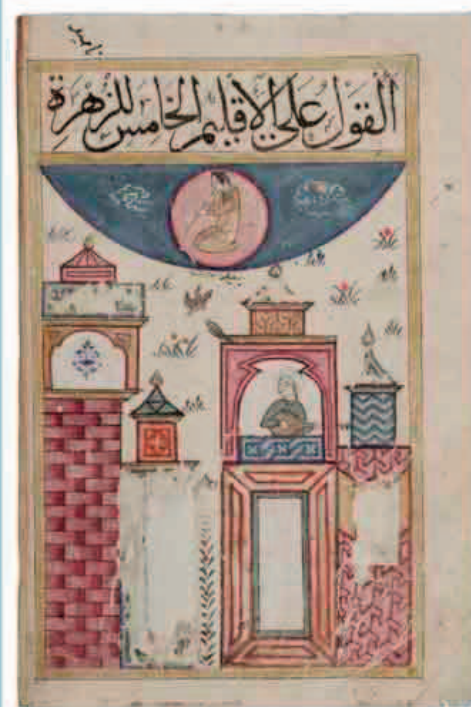 القول علي الاقليم الخامس للزهرة